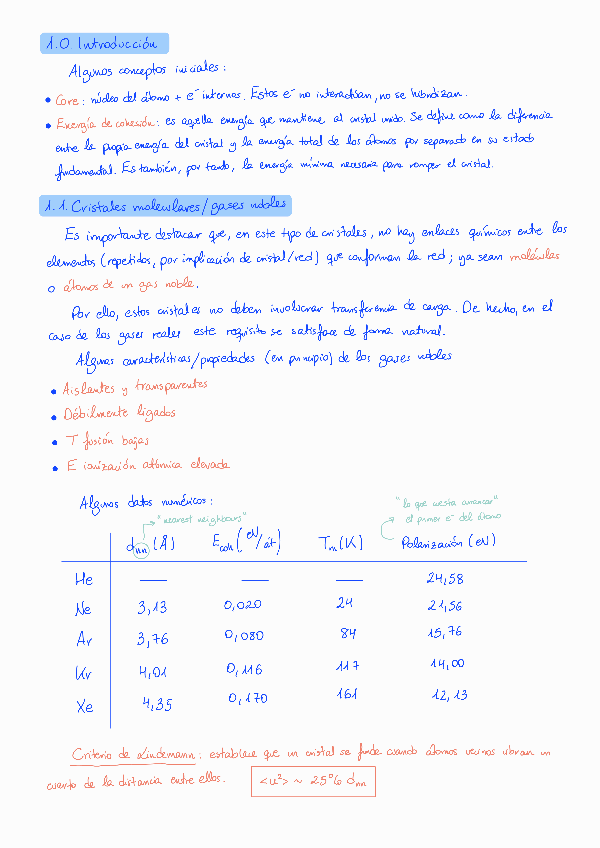 1.0. Introducción
Algunos conceptos iniciales:
• Core: núcleo del átomo + e⁻ internos. Estos e⁻ no interactúan, no se hibridizan.
• Energía de cohesión: es aquella energía que mantiene al cristal unido. Se define como la diferencia
entre la propia energía del cristal y la energía total de los átomos por separado en su estado
fundamental. Es también, por tanto, la energía mínima necesaria para romper el cristal.
1.1. Cristales moleculares/gases nobles
Es importante destacar que, en este tipo de cristales, no hay enlaces químicos entre los
elementos (repetidos, por implicación de cristal/red) que conforman la red; ya sean moléculas
o átomos de un gas noble.
Por ello, estos cristales no deben involucrar transferencia de carga. De hecho, en el
caso de los gases reales este requisito se satisface de forma natural.
Algunas características/propiedades (en principio) de los gases nobles
• Aislantes y transparentes
• Débilmente ligados
• T fusión bajas
• E ionización atómica elevada
Algunos datos numéricos:
"nearest neighbours"
"lo que cuesta arrancar"
el primer e⁻ del átomo
dₙₙ (Å) E_coh (eV/át) Tₘ (K) Polarización (eV)
He — — — 24,58
Ne 3,13 0,020 24 21,56
Ar 3,76 0,080 84 15,76
Kr 4,01 0,116 117 14,00
Xe 4,35 0,170 161 12,13
Criterio de Lindemann: establece que un cristal se funde cuando átomos vecinos vibran un
cuarto de la distancia entre ellos. <u²> ~ 25% dₙₙ